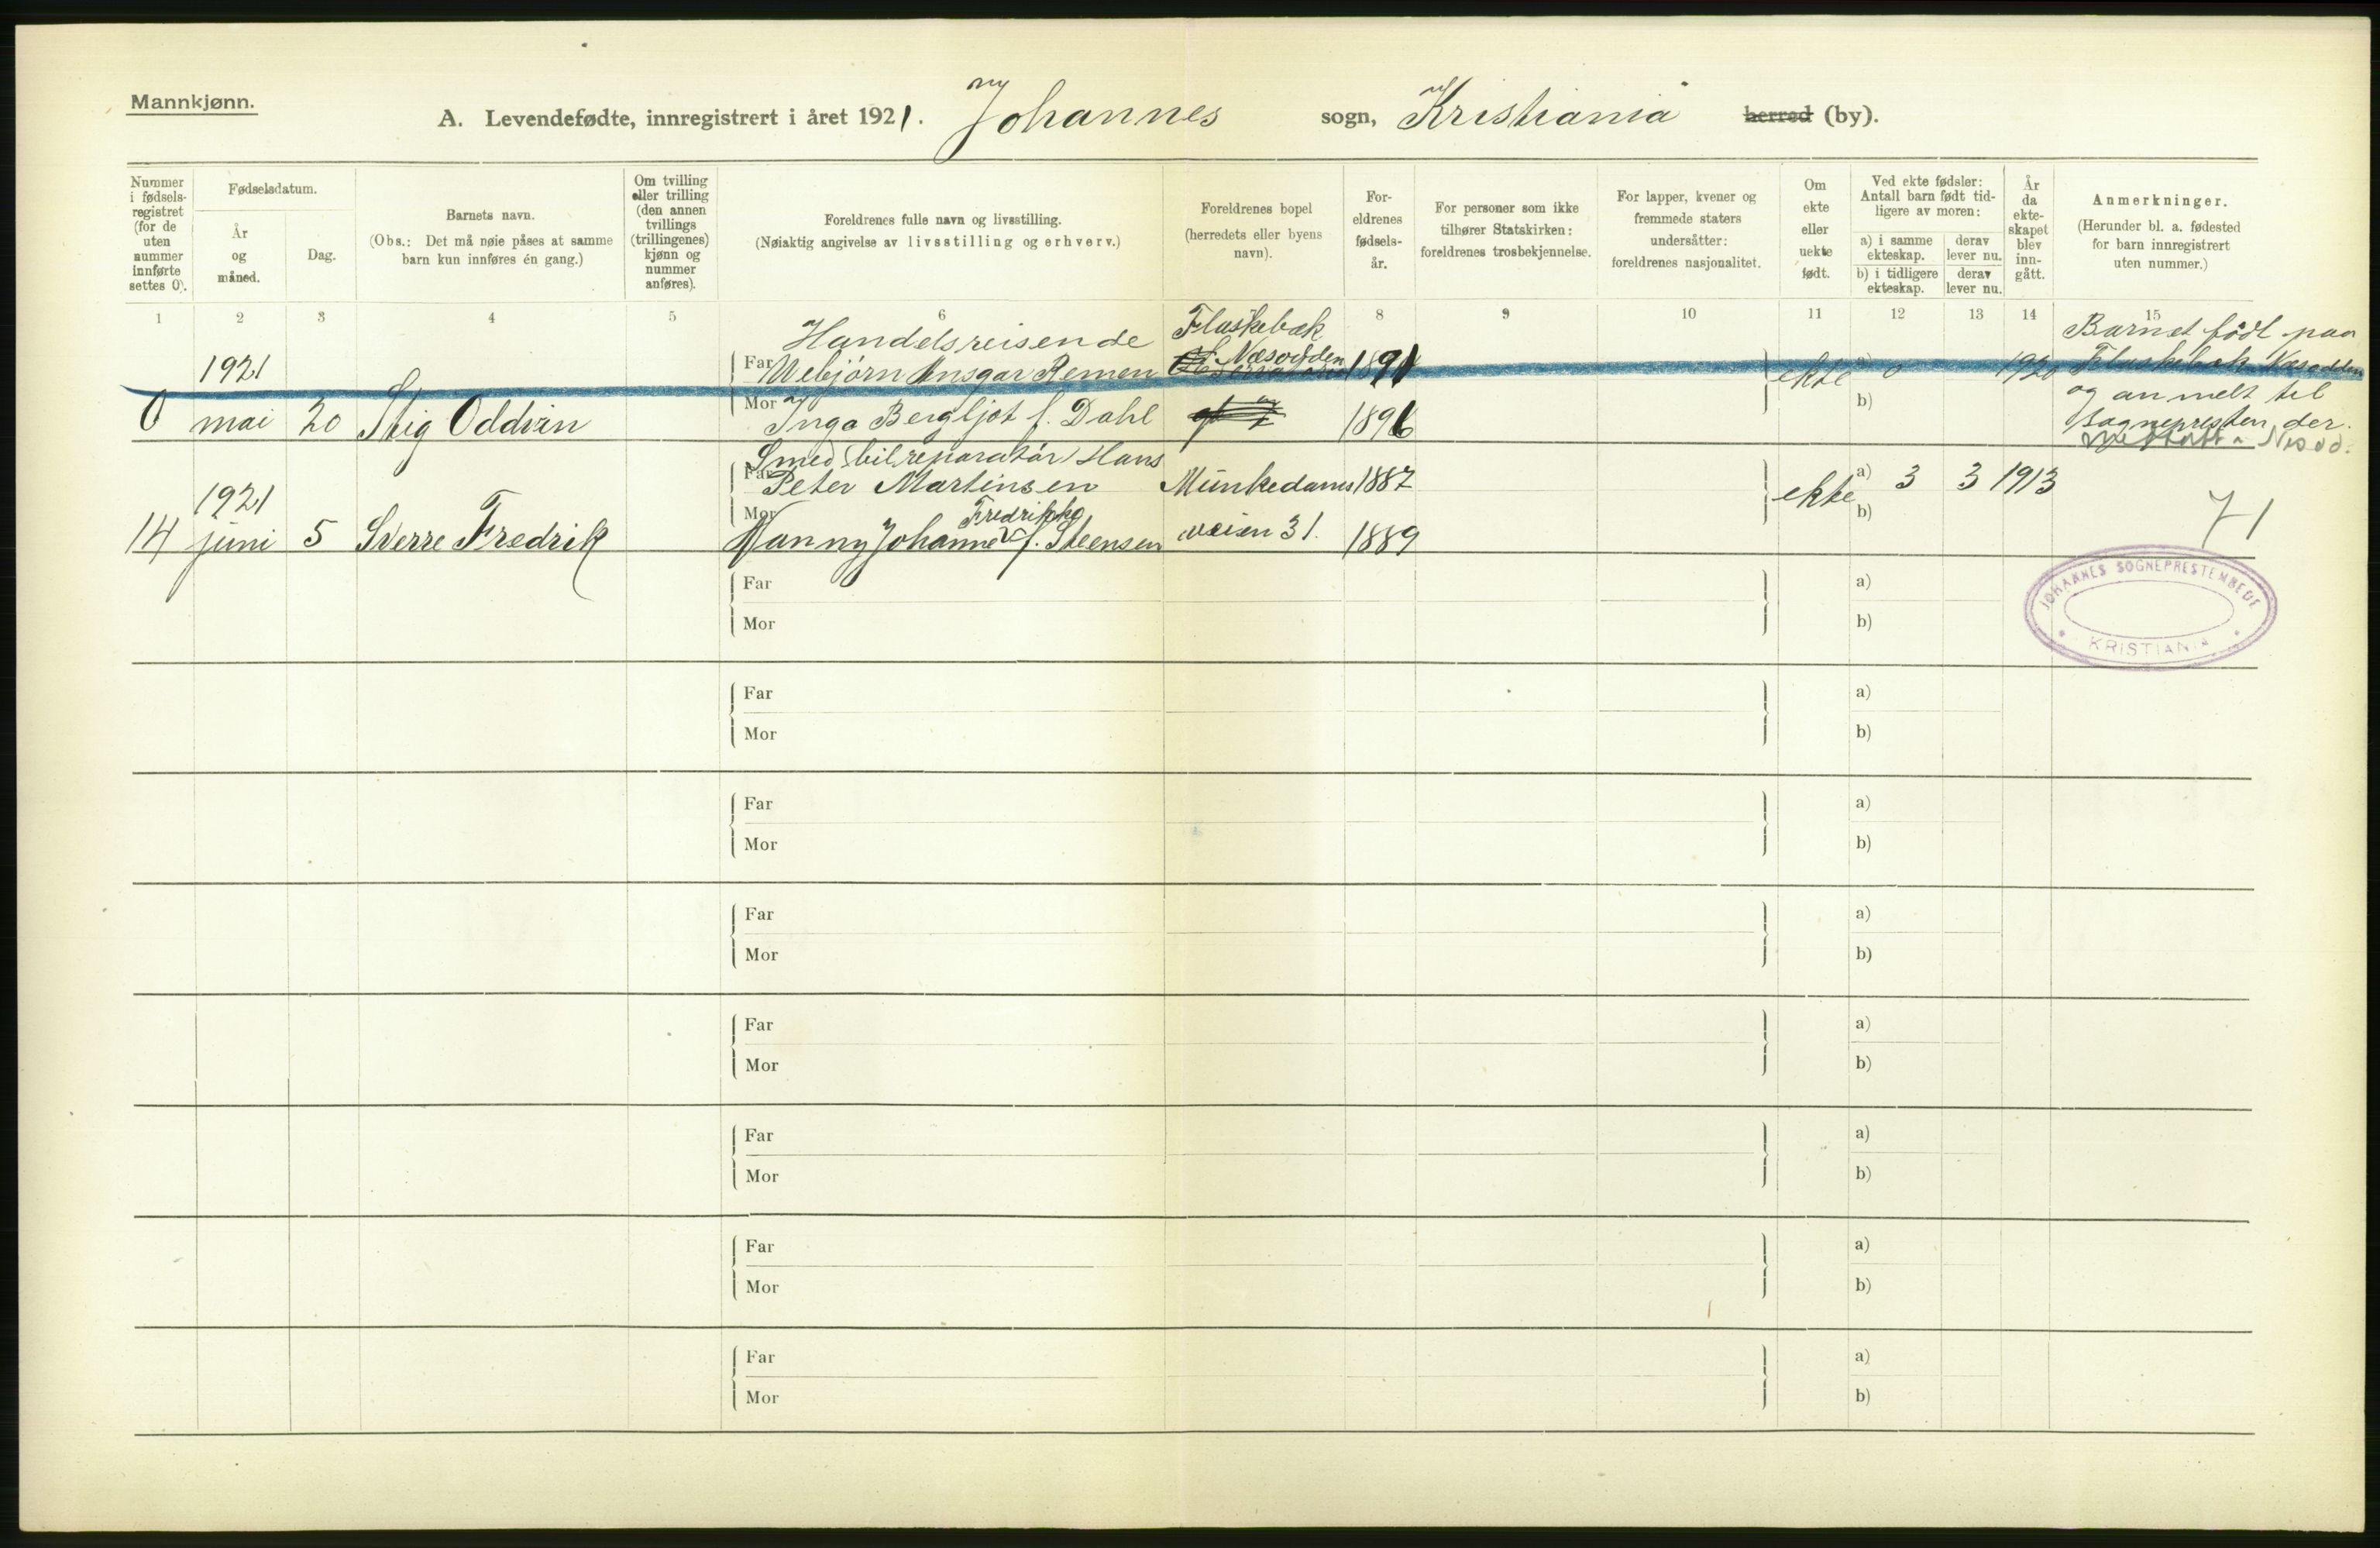 Mannkjønn.
A. Levendefødte, innregistrert i året 1921. Johannes sogn, Kristiania herred (by).
Nummer i fødsels-registret (for de uten nummer innførte settes 0).
Fødselsdatum.
År og måned.
Dag.
Barnets navn.
(Obs.: Det må nøie påses at samme barn kun innføres én gang.)
Om tvilling eller trilling (den annen tvillings (trillingenes) kjønn og nummer anføres).
Foreldrenes fulle navn og livsstilling.
(Nøiaktig angivelse av livsstilling og erhverv.)
Foreldrenes bopel (herredets eller byens navn).
For-eldrenes fødsels-år.
For personer som ikke tilhører Statskirken: foreldrenes trosbekjennelse.
For lapper, kvener og fremmede staters undersåtter: foreldrenes nasjonalitet.
Om ekte eller uekte født.
Ved ekte fødsler: Antall barn født tid-ligere av moren:
a) i samme ekteskap.
derav lever nu.
b) i tidligere ekteskap.
derav lever nu.
År da ekte-skapet blev inn-gått.
Anmerkninger.
(Herunder bl. a. fødested for barn innregistrert uten nummer.)
1 2 3 4 5 6 8 9 10 11 12 13 14 15
Handelsreisende Flaskebæk Barnet födt paa
1921 Far Webjörn Ansgar Remen Næsodden 1891 ekte a) 0 1920 Flaskebæk Næsodden
0 mai 20 Stig Oddvin Mor Inga Bergljot f. Dahl 1896 b) og anmelt til
Sognepresten der.
Smed (bilreparatör) Hans
1921 Far Peter Martinsen Munkedams 1887 ekte a) 3 3 1913
Mor Fredrikke b) 71
14 juni 5 Sverre Fredrik Nanny Johanne f. Steensen veien 31. 1889
Far a)
Mor b)
JOHANNES SOGNEPRESTEMBEDE
KRISTIANIA
Far a)
Mor b)
Far a)
Mor b)
Far a)
Mor b)
Far a)
Mor b)
Far a)
Mor b)
Far a)
Mor b)
Far a)
Mor b)